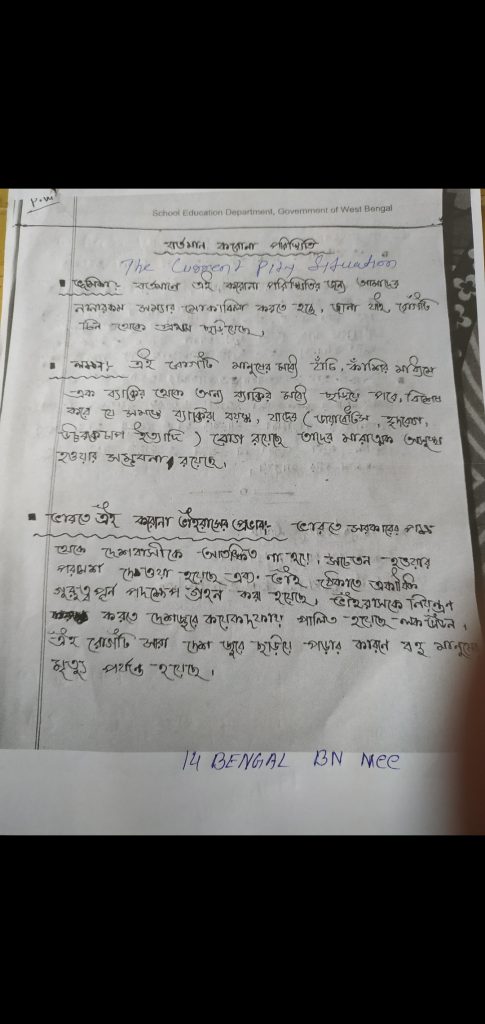 P.W
School Education Department, Government of West Bengal
বর্তমান করোনা পরিস্থিতি
The Current Pity Situation
▪ ভূমিকা:- বর্তমানে এই করোনা পরিস্থিতির জন্য আমাদের
নানারকম সমস্যার মোকাবিলা করতে হচ্ছে, জানা যায় রোগটি
চিন থেকে প্রথম ছড়িয়েছে,
▪ লক্ষণ:- এই রোগটি মানুষের মধ্যে হাঁচি, কাঁশির মাধ্যমে
এক ব্যাক্তির থেকে অন্য ব্যাক্তির মধ্যে ছড়িয়ে পরে, বিশেষ
করে যে সমস্ত ব্যাক্তিরা বয়স্ক, যাদের (ডায়াবেটিস, হৃদরোগ,
উচ্চরক্তচাপ ইত্যাদি) রোগ রয়েছে তাদের মারাত্মক অসুস্থ
হওয়ার সম্ভাবনা রয়েছে,
▪ ভারতে এই করোনা ভাইরাসের প্রভাব:- ভারতে সরকারের পক্ষ
থেকে দেশবাসীকে আতঙ্কিত না হয়ে, সচেতন হওয়ার
পরামর্শ দেওয়া হয়েছে এবং ভাই ঠেকাতে একাধিক
গুরুত্বপূর্ন পদক্ষেপ গ্রহন করা হয়েছে, ভাইরাসকে নিয়ন্ত্রন
করতে দেশজুরে কয়েকদফায় পালিত হয়েছে লক ডাউন,
এই রোগটি সারা দেশ জুরে ছড়িয়ে পড়ার কারণে বহু মানুষের
মৃত্যু পর্যন্ত হয়েছে,
14 BENGAL BN NCC